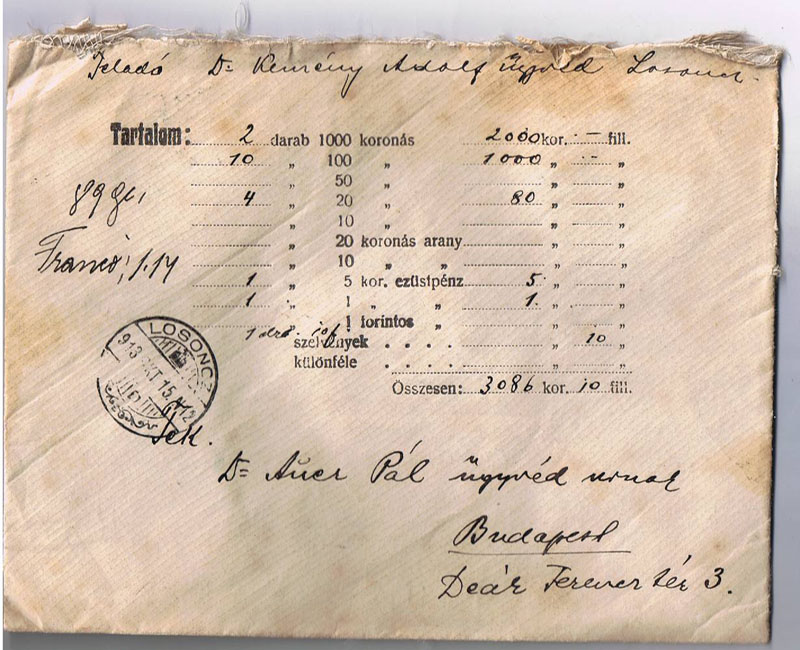 Feladó Dr Kemény Adolf ügyvéd Losoncz.
Tartalom: 2 darab 1000 koronás 2000 kor. — fill.
10 „ 100 „ 1000 „ — „
„ 50 „ „ „
4 „ 20 „ 80 „ „
„ 10 „ „ „
„ 20 koronás arany „ „
„ 10 „ „ „ „
1 „ 5 kor. ezüstpénz 5 „ „
1 „ 1 „ „ 1 „ „
1 forintos „ „ „
1 drb. 10f szelvények . . . . „ 10 „
különféle . . . . „ „
Összesen: 3086 kor. 10 fill.
89 gr,
Franco, 1.14
LOSONCZ
913 OKT 15
Dr Auer Pál ügyvéd urnak
Budapest
Deák Ferencz tér 3.